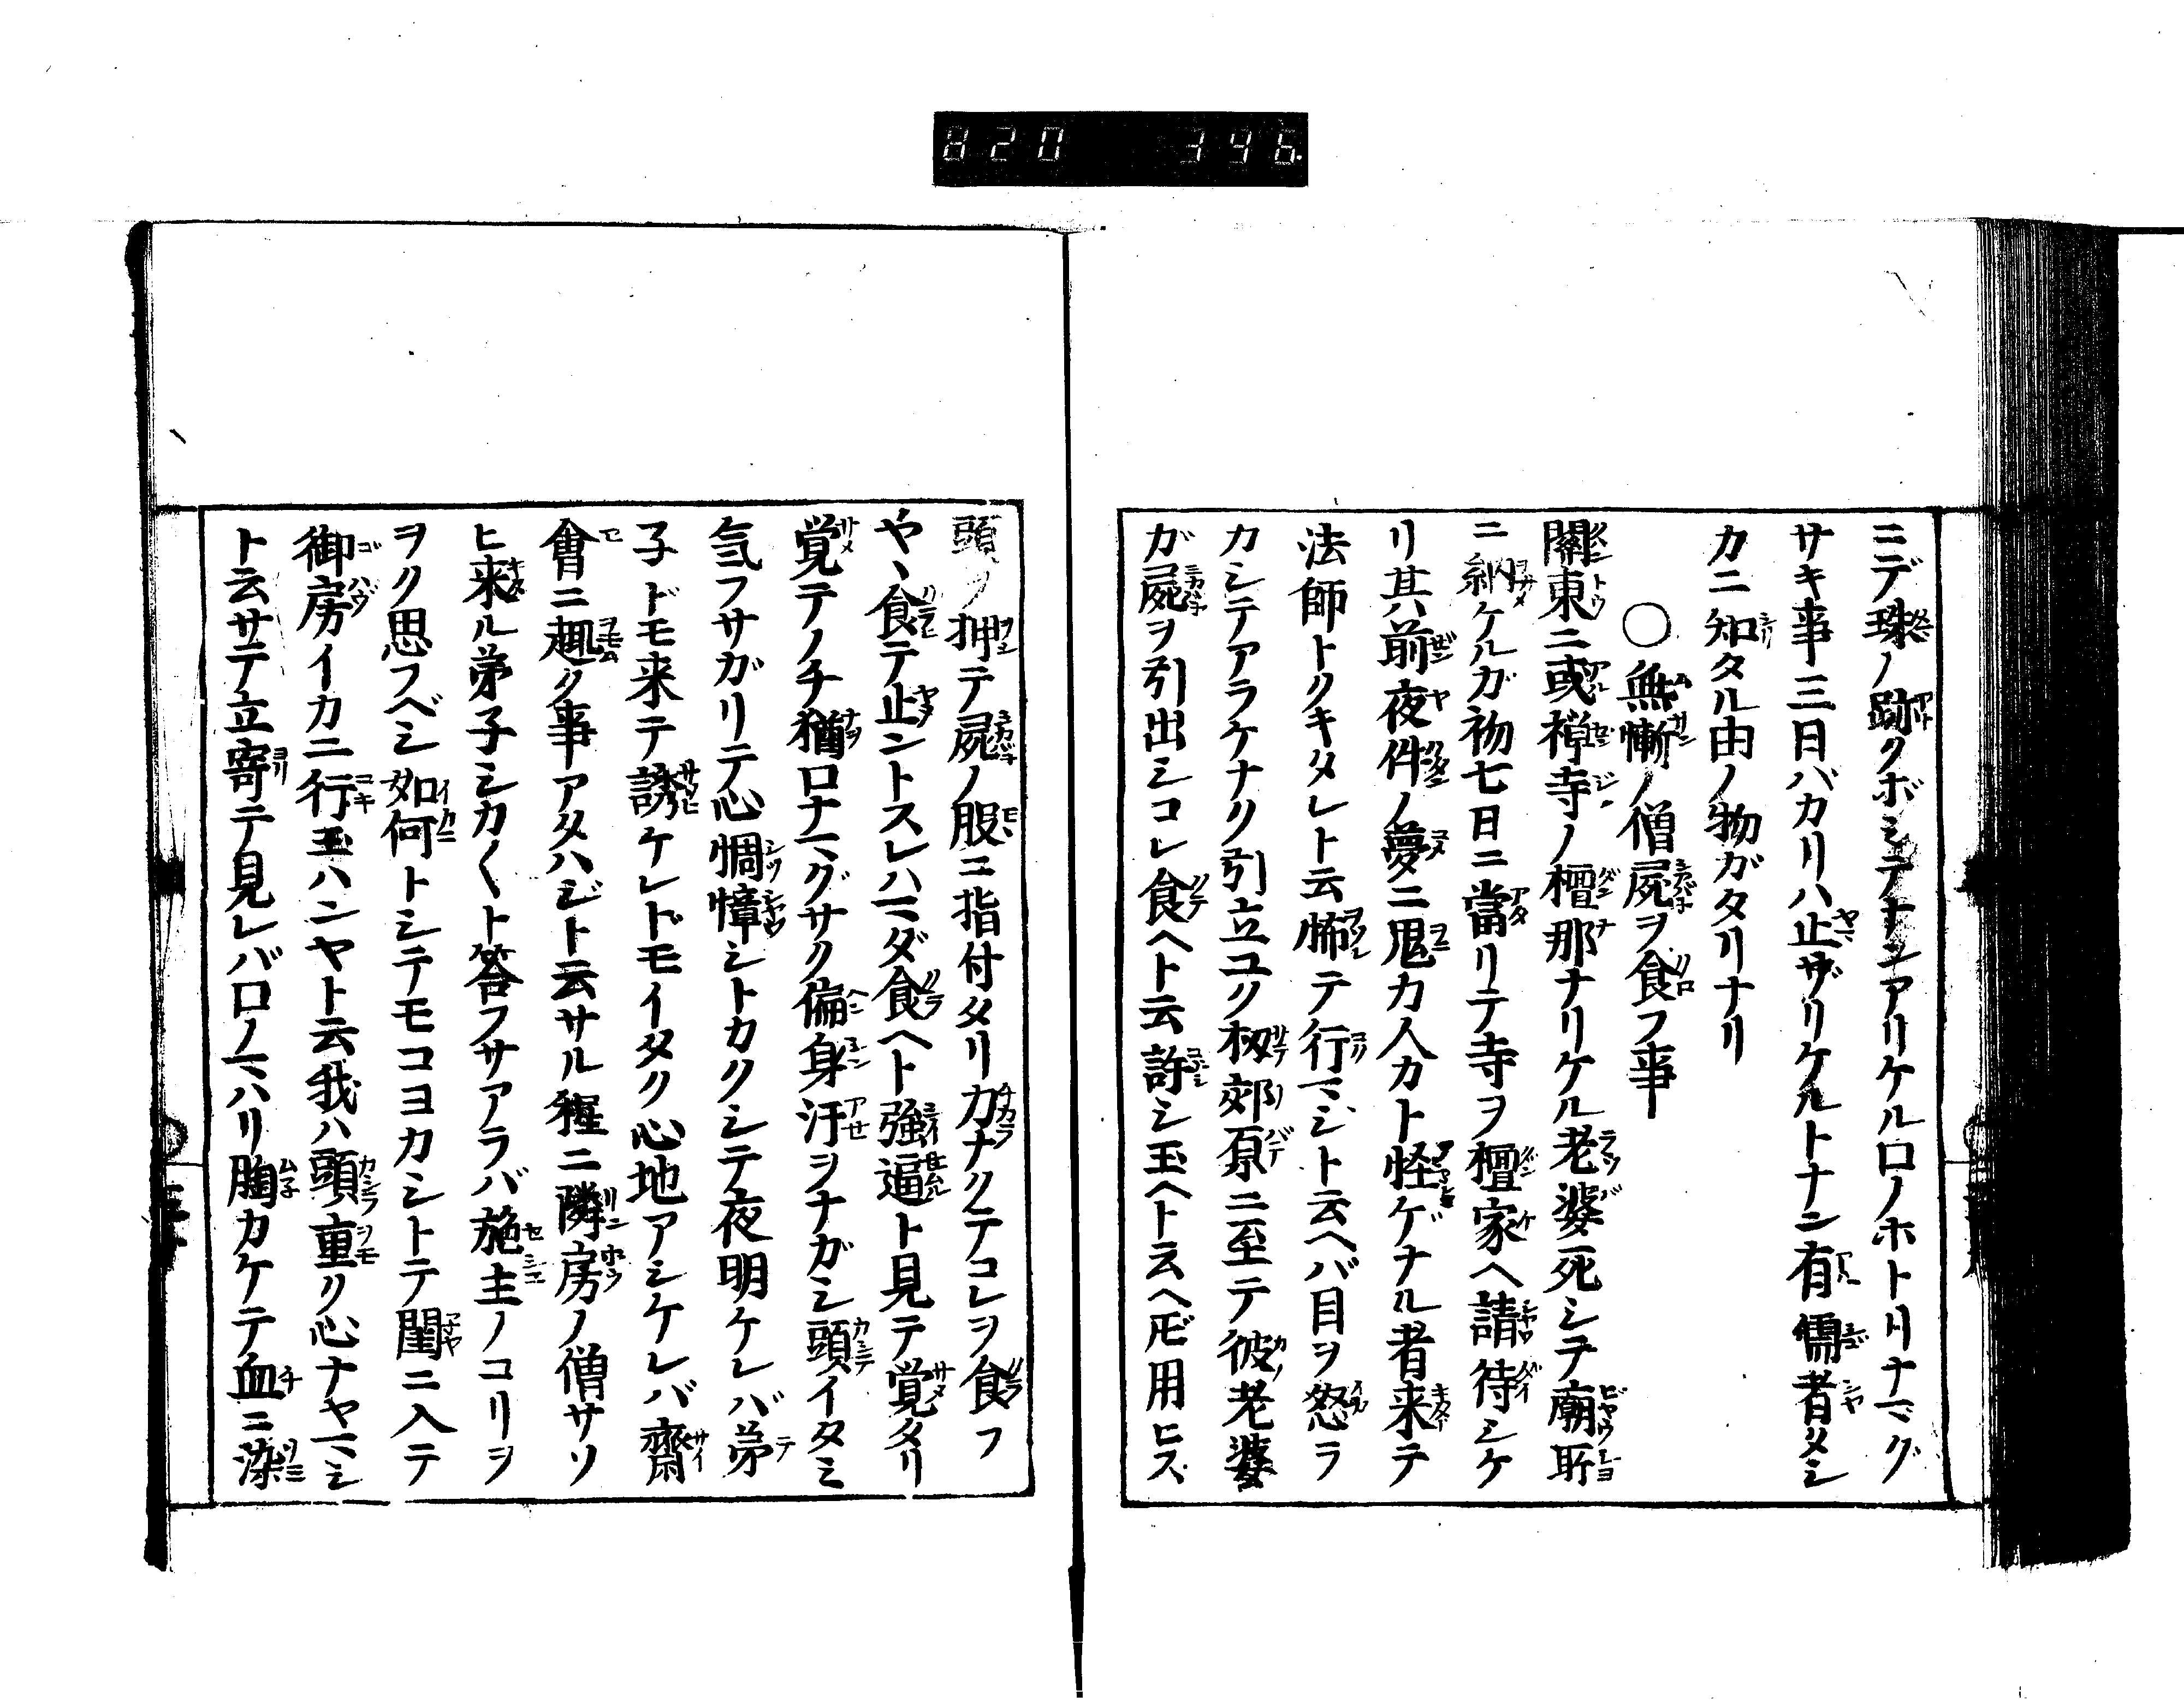 820 346.
ニデ珠ノ跡クボミテナンアリケル口ノホトリナマグ
サキ事三日バカリハ止ザリケルトナン有儒者タシ
カニ知タル由ノ物ガタリナリ
○無慚ノ僧屍ヲ食フ事
關東ニ或禅寺ノ檀那ナリケル老婆死シテ廟所
ニ納ケルガ初七日ニ當リテ寺ヲ檀家ヘ請待シケ
リ其前夜件ノ夢ニ鬼カ人カト怪ゲナル者来テ
法師トクキタレト云怖テ行マジト云ヘバ目ヲ怒ラ
カシテアラケナク引立ユク扨郊原ニ至テ彼老婆
ガ屍ヲ引出シコレ食ヘト云許シ玉ヘト云ヘ𪜈用ヒズ
頭ヲ押テ屍ノ股ニ指付タリ力ナクテコレヲ食フ
ヤヽ食テ止ントスレハマダ食ヘト強逼ト見テ覚タリ
覚テノチ猶口ナマグサク偏身汗ヲナガシ頭イタミ
気フサガリテ心惆悵シトカクシテ夜明ケレバ弟
子ドモ来テ誘ケレドモイタク心地アシケレバ齋
會ニ趣ク事アタハジト云サル程ニ隣房ノ僧サソ
ヒ来ル弟子シカ〱ト答フサアラバ施主ノコリヲ
ヲク思フベシ如何トシテモコヨカシトテ閨ニ入テ
御房イカニ行玉ハンヤト云我ハ頭重ク心ナヤマシ
ト云サテ立寄テ見レバ口ノマハリ胸カケテ血ニ染